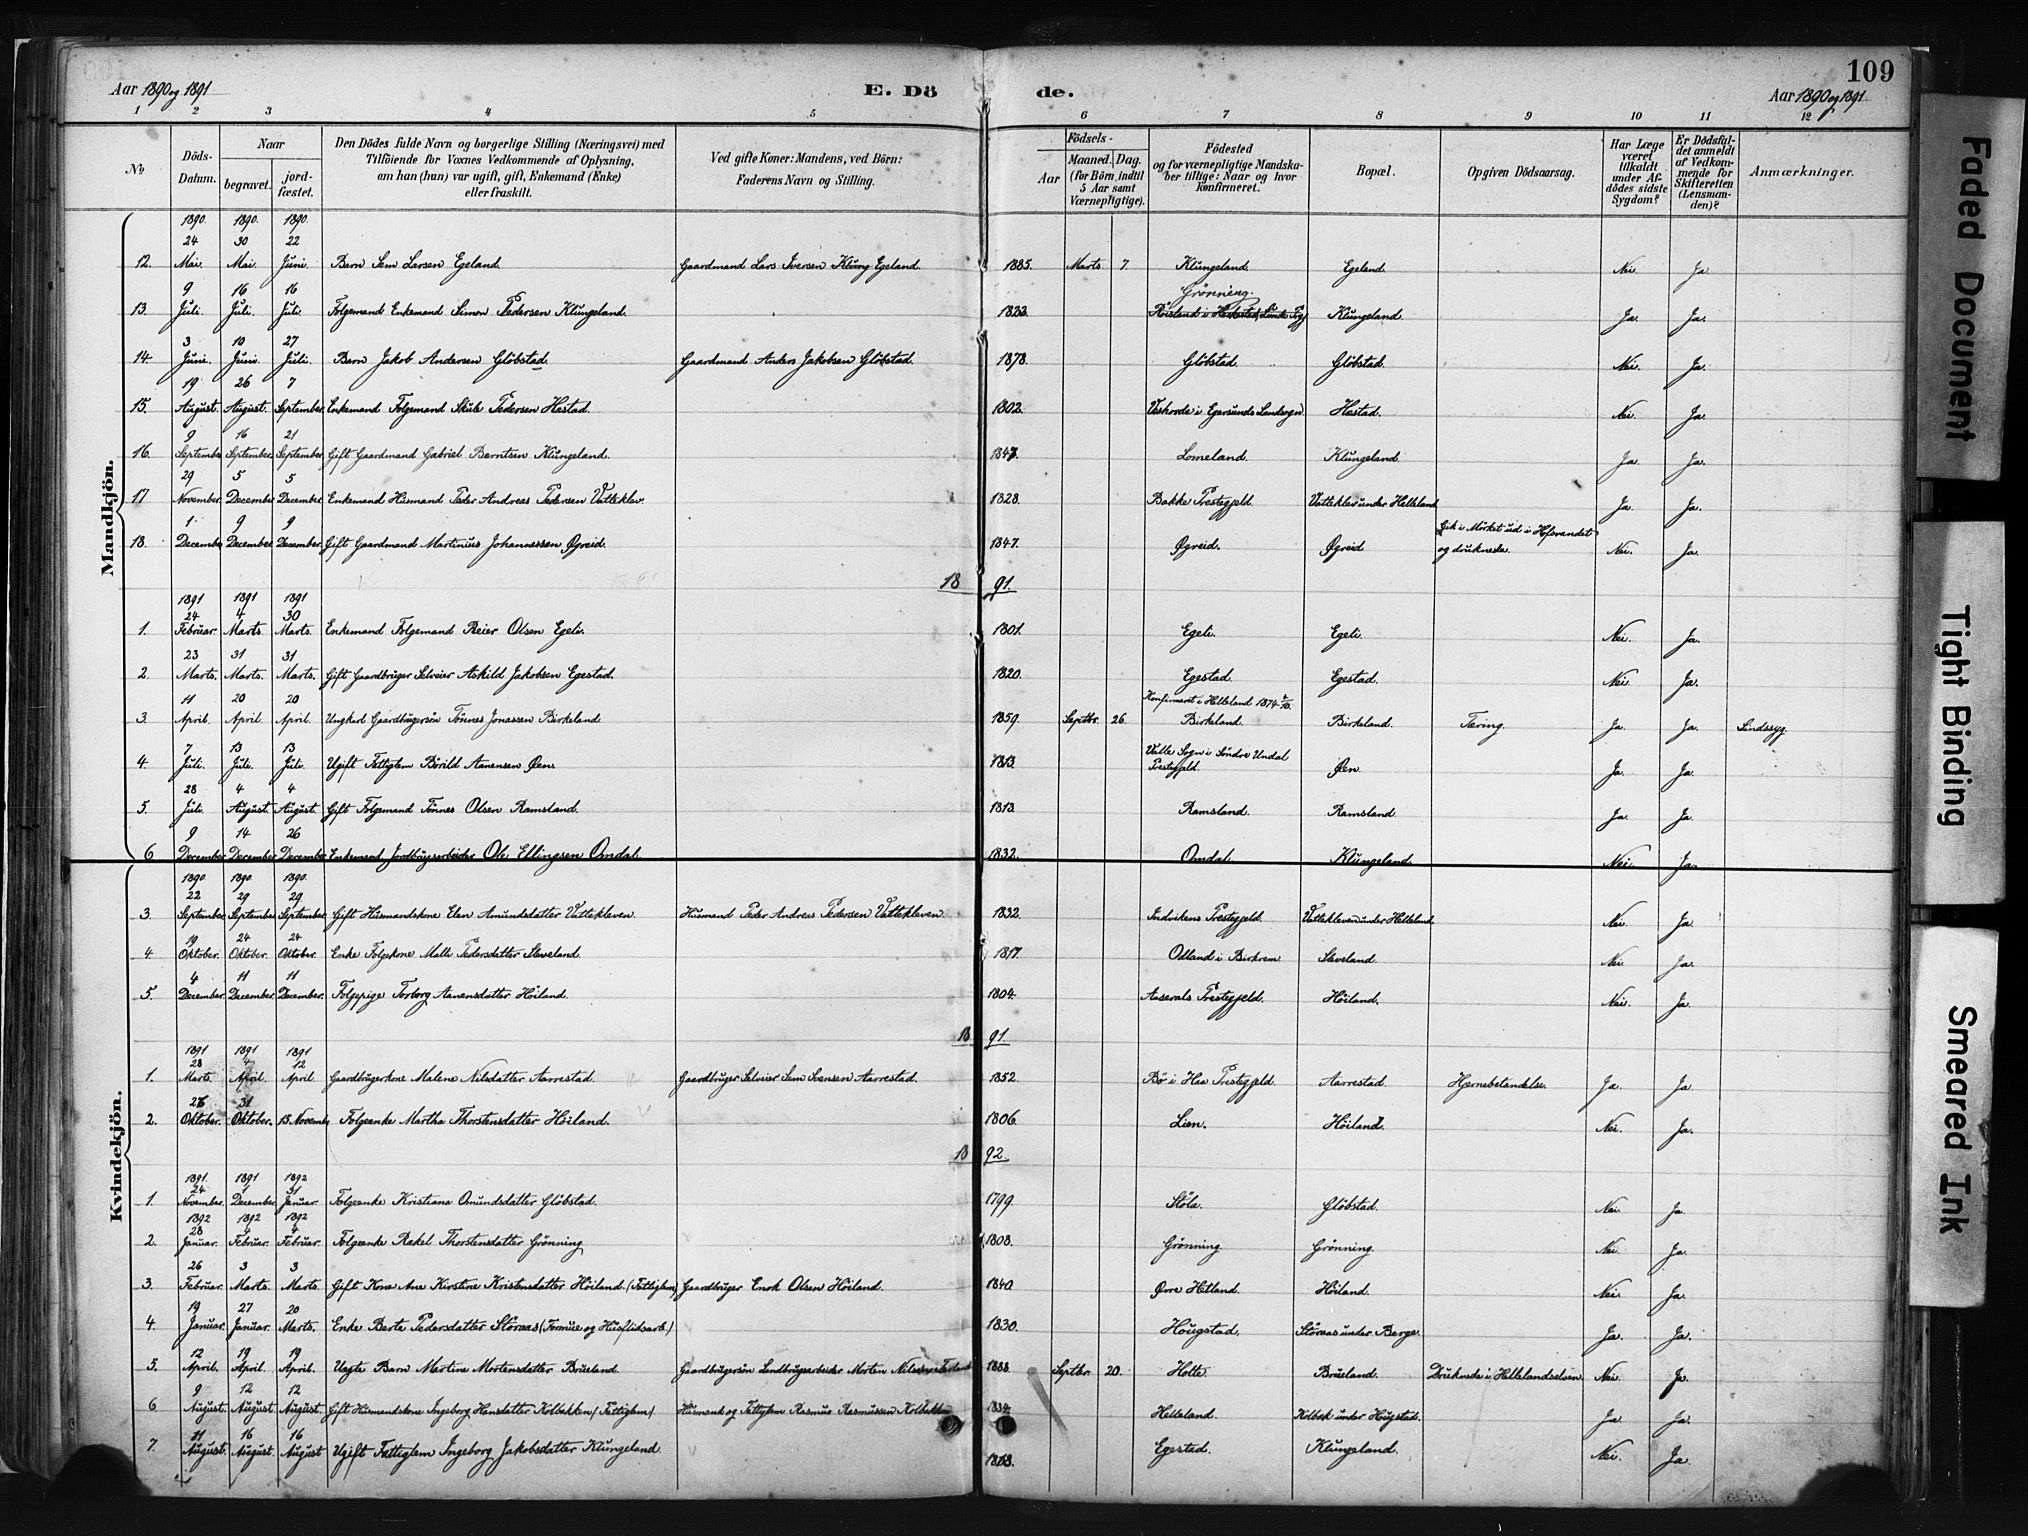 Aar 1890 og 1891
E. Dö
de.
Aar 1890 og 1891
109
1 2 3 4 5 6 7 8 9 10 11 12
No
Döds-Datum.
Naar
begravet.
jord-fæstet.
Den Dödes fulde Navn og borgerlige Stilling (Næringsvei) med
Tilföiende for Voxnes Vedkommende af Oplysning,
om han (hun) var ugift, gift, Enkemand (Enke)
eller fraskilt.
Ved gifte Koner: Mandens, ved Börn:
Faderens Navn og Stilling.
Födsels-
Aar
Maaned. Dag.
(for Börn, indtil
5 Aar samt
Værnepligtige).
Födested
og for værnepligtige Mandska-
ber tillige: Naar og hvor
konfirmeret.
Bopæl.
Opgiven Dödsaarsag.
Har Læge
været
tilkaldt
under Af-
dödes sidste
Sygdom?
Er Dödsfal-
det anmeldt
af Vedkom-
mende for
Skifteretten
(Lensman-
den)?
Anmærkninger.
Mandkjön.
1890. 1890. 1890.
24 30 22
12. Mai. Mai. Juni. Barn Sem Larsen Egeland. Gaardmand Lars Iversen Klung Egeland. 1885. Marts 7. Klungeland. Egeland. Nei. Ja
9 16 16 Grönning.
13. Juli. Juli. Juli. Folgemand Enkemand Simon Pedersen Klungeland. 1823. Klungeland. Ja. Ja.
3 10 27
14. Juni. Juni. Juli. Barn Jakob Andersen Glöbstad. Gaardmand Anders Jakobsen Glöbstad. 1878. Glöbstad. Glöbstad. Nei. Ja.
19 26 7
15. August. August. September. Enkemand Folgemand Skule Pedersen Hestad. 1802. i Egersunds Landsogn. Hestad. Nei. Ja.
9 16 21
16. September September. September. Gift Gaardmand Gabriel Berntsen Klungeland. 1847. Lomeland. Klungeland. Ja. Ja.
29 5 5
17 November December December. Enkemand Husmand Peder Andreas Pedersen Vatteklev. 1828. Bakke Prestegjeld. Vatteklev under Helleland Ja. Ja.
1 9 9 Gik i Mørket ud i Hofsvandet
18. December December December. Gift Gaardmand Martinius Johannessen Øgreid. 1847. Øgreid. Øgreid og druknede. Nei. Ja.
18 91.
1891 1891 1891
24 4 30
1. Februar. Marts. Marts. Enkemand Folgemand Reier Olsen Egeli. 1801. Egeli. Egeli. Nei. Ja.
23 31 31
2. Marts. Marts. Marts. Gift Gaardbruger Selveier Askild Jakobsen Egestad. 1820. Egestad. Egestad. Nei Ja.
11 20 20 Konfirmeret i Helleland 1874
3. April. April. April. Ungkarl Gaardbrugersön Tönnes Jonassen Birkeland 1859. Septbr. 26. Birkeland. Birkeland. Tæring. Ja. Ja. Sindssyg.
7 13 13 Valle Sogn i Söndre Undal
4. Juli. Juli. Juli. Ugift Fattiglem Börild Aanensen Øen. 1813. Prestegjeld. Øen. Ja. Ja.
28 4 4
5. Juli. August. August. Gift Folgemand Tönnes Olsen Ramsland. 1813. Ramsland. Ramsland. Ja. Ja
9 14 26
6. December December December Enkemand Jordbrugsarbeider Ole Ellingsen Omdal. 1832. Omdal. Klungeland. Nei. Ja.
Kvindekjön.
1890. 1890. 1890.
22 29 29
3. September September September. Gift Husmandskone Elen Amundsdatter Vatteklaven. Husmand Peder Andreas Pedersen Vatteklaven 1832. Indvikens Prestegjeld. Vatteklaven under Helleland Nei. Ja
19 24 24
4. Oktober. Oktober. Oktober. Enke Folgekone Malli Pedersdatter Sleveland. 1817. i Birkrem Sleveland. Nei Ja.
4 11 11
5. December. December. December. Folgepige Torborg Aanensdatter Höiland. 1804. Aaserals Prestegjeld. Höiland. Nei. Ja.
18 91.
1891 1891 1891
28 4 12
1. Marts. April. April. Gaardbrugerkone Malene Nilsdatter Aarrestad. Gaardbruger Selveier Sem Svensen Aarrestad. 1852. Bö i Haa Prestegjeld. Aarrestad. Hjernebetændelse. Ja. Ja
31
2. Oktober. Oktober. 15. Novembr. Folgeenke Martha Thorstensdatter Höiland. 1806. Lien. Höiland. Nei. Ja.
18 92.
1891. 1891 1892
24 1 31
1. November. December. Januar. Folgeenke Kristiana Omundsdatter Glöbstad. 1799. Støla. Glöbstad. Nei. Ja.
1892 1892 1892
28 4 4
2. Januar. Februar. Februar. Folgeenke Rakel Thorstensdatter Grönning 1808. Grönning Grönning. Nei. Ja.
26 3 3
3. Februar. Marts. Marts. Gift Kone Ane Kirstine Kristensdatter Höiland. (Fattiglem) Gaardbruger Enok Olsen Höiland. 1840. Øvre Hetland. Höiland. Nei. Ja.
19 27 20
4. Januar. Januar. Marts. Enke Berte Pedersdatter Störaas (Formue og Husflidsarb.) 1830. Hougstad. Störaas under Berge. Ja. Ja.
12 19 19
5. April. April. April. Uægte Barn Martine Mortensdatter Brüsland. Gaardbrugersön Landbrugsarbeider Morten Nilssen 1888 Septbr. 20. Holte. Brüsland. Druknede i Hellelandselven. Nei. Ja.
9 12 12
6 August. August August. Gift Husmandskone Ingeborg Hansdatter Kolbakken (Fattiglem) Husmand og Fattiglem Rasmus Rasmussen Kolbakken 1834. Helleland. Kolbak under Hougstad. Ja. Ja.
11 16 16
7. August. August August Ugift Fattiglem Ingeborg Jakobsdatter Klungeland. Egestad. Klungeland. Nei. Ja.
Faded Document
Tight Binding
Smeared Ink